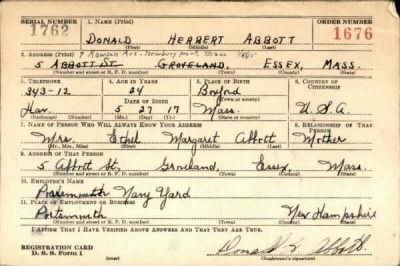 SERIAL NUMBER 1. NAME (Print) ORDER NUMBER
1762 DONALD HERBERT ABBOTT 1676
(First) (Middle) (Last)
2. ADDRESS (Print) 7 Rawson Ave. Newburyport, Mass
5 ABBOTT ST. GROVELAND, ESSEX, MASS.
(Number and street or R. F. D. number) (Town) (County) (State)
3. TELEPHONE 4. AGE IN YEARS 5. PLACE OF BIRTH 6. COUNTRY OF CITIZENSHIP
343-12 24 Boxford
DATE OF BIRTH (Town or county)
Hav. 5 27 17 Mass. U.S.A.
(Exchange) (Number) (Mo.) (Day) (Yr.) (State or country)
7. NAME OF PERSON WHO WILL ALWAYS KNOW YOUR ADDRESS 8. RELATIONSHIP OF THAT PERSON
Mrs. Ethel Margaret Abbott Mother
(Mr., Mrs., Miss) (First) (Middle) (Last)
9. ADDRESS OF THAT PERSON
5 Abbott St. Groveland Essex, Mass.
(Number and street or R. F. D. number) (Town) (County) (State)
10. EMPLOYER'S NAME
Portsmouth Navy Yard
11. PLACE OF EMPLOYMENT OR BUSINESS
Portsmouth New Hampshire
(Number and street or R. F. D. number) (Town) (County) (State)
I AFFIRM THAT I HAVE VERIFIED ABOVE ANSWERS AND THAT THEY ARE TRUE.
REGISTRATION CARD
D. S. S. Form 1 Donald H. Abbott
(Registrant's signature)